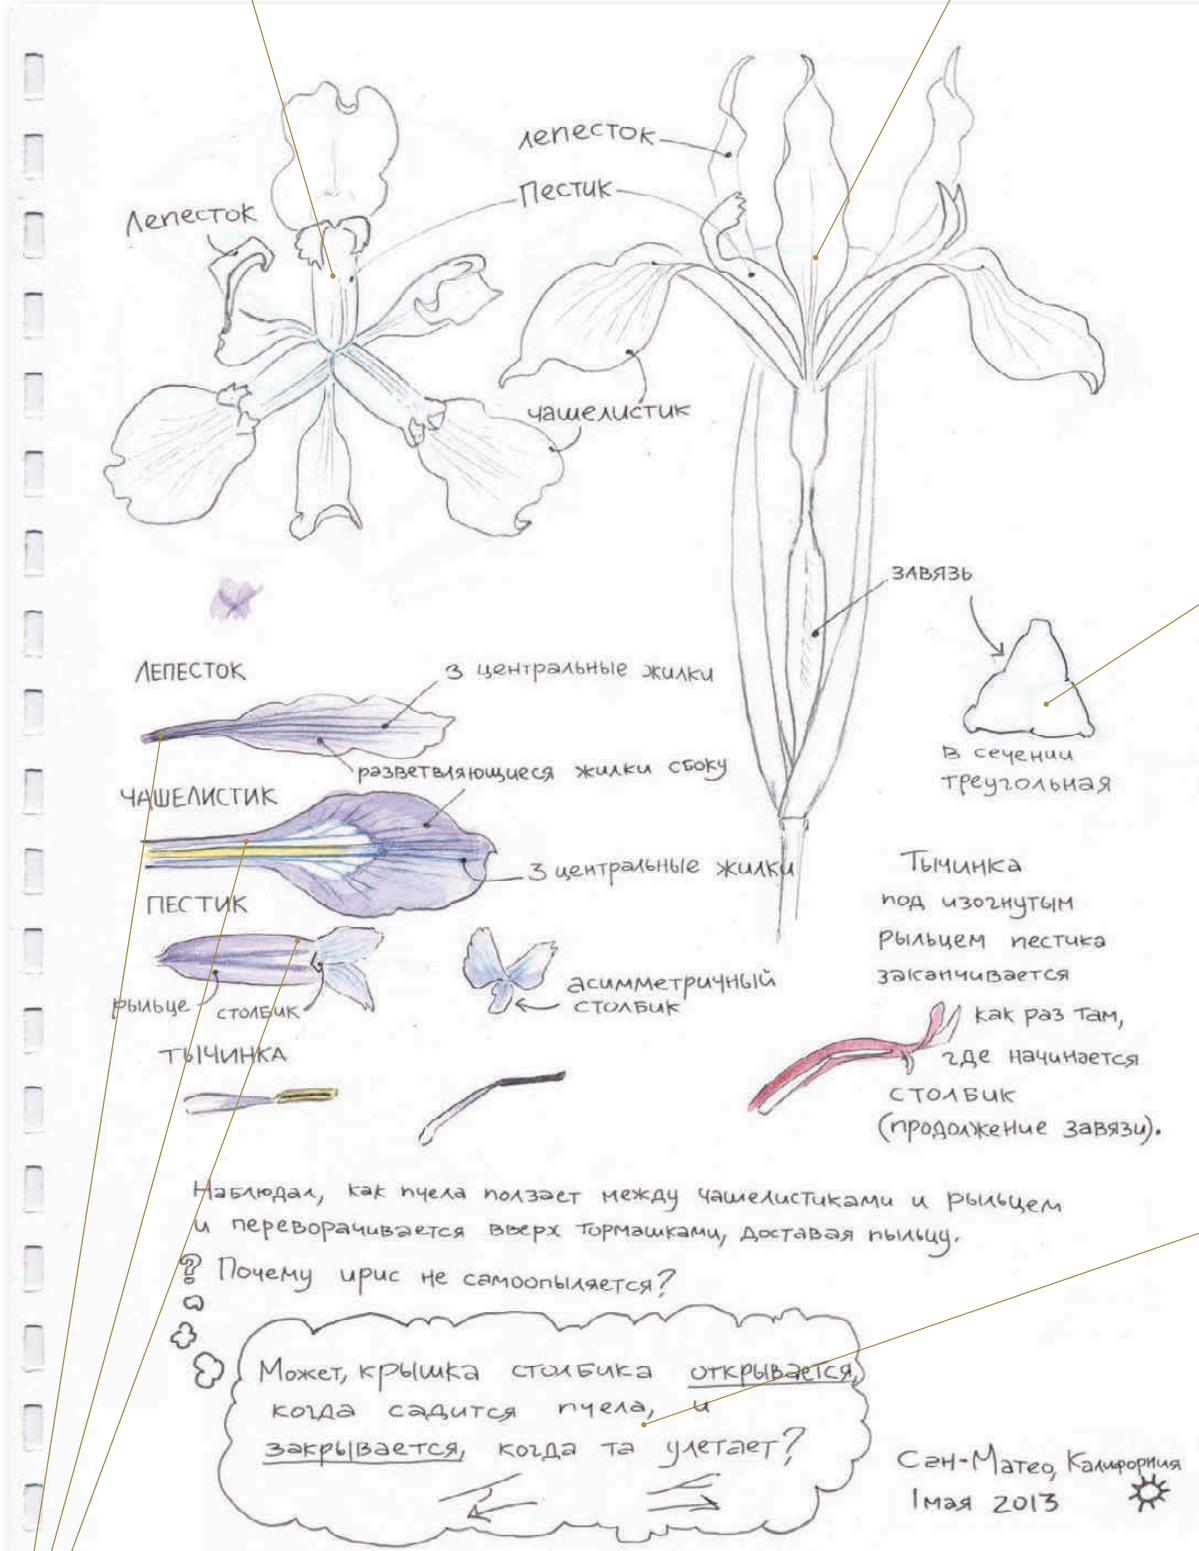 лепесток
Пестик
Лепесток
чашелистик
завязь
В сечении
треугольная
ЛЕПЕСТОК
3 центральные жилки
разветвляющиеся жилки сбоку
ЧАШЕЛИСТИК
3 центральные жилки
ПЕСТИК
рыльце
столбик
асимметричный
столбик
ТЫЧИНКА
Тычинка
под изогнутым
рыльцем пестика
заканчивается
как раз там,
где начинается
столбик
(продолжение завязи).
Наблюдал, как пчела ползает между чашелистиками и рыльцем
и переворачивается вверх тормашками, доставая пыльцу.
? Почему ирис не самоопыляется?
Может, крышка столбика открывается,
когда садится пчела, и
закрывается, когда та улетает?
Сан-Матео, Калифорния
1 мая 2013